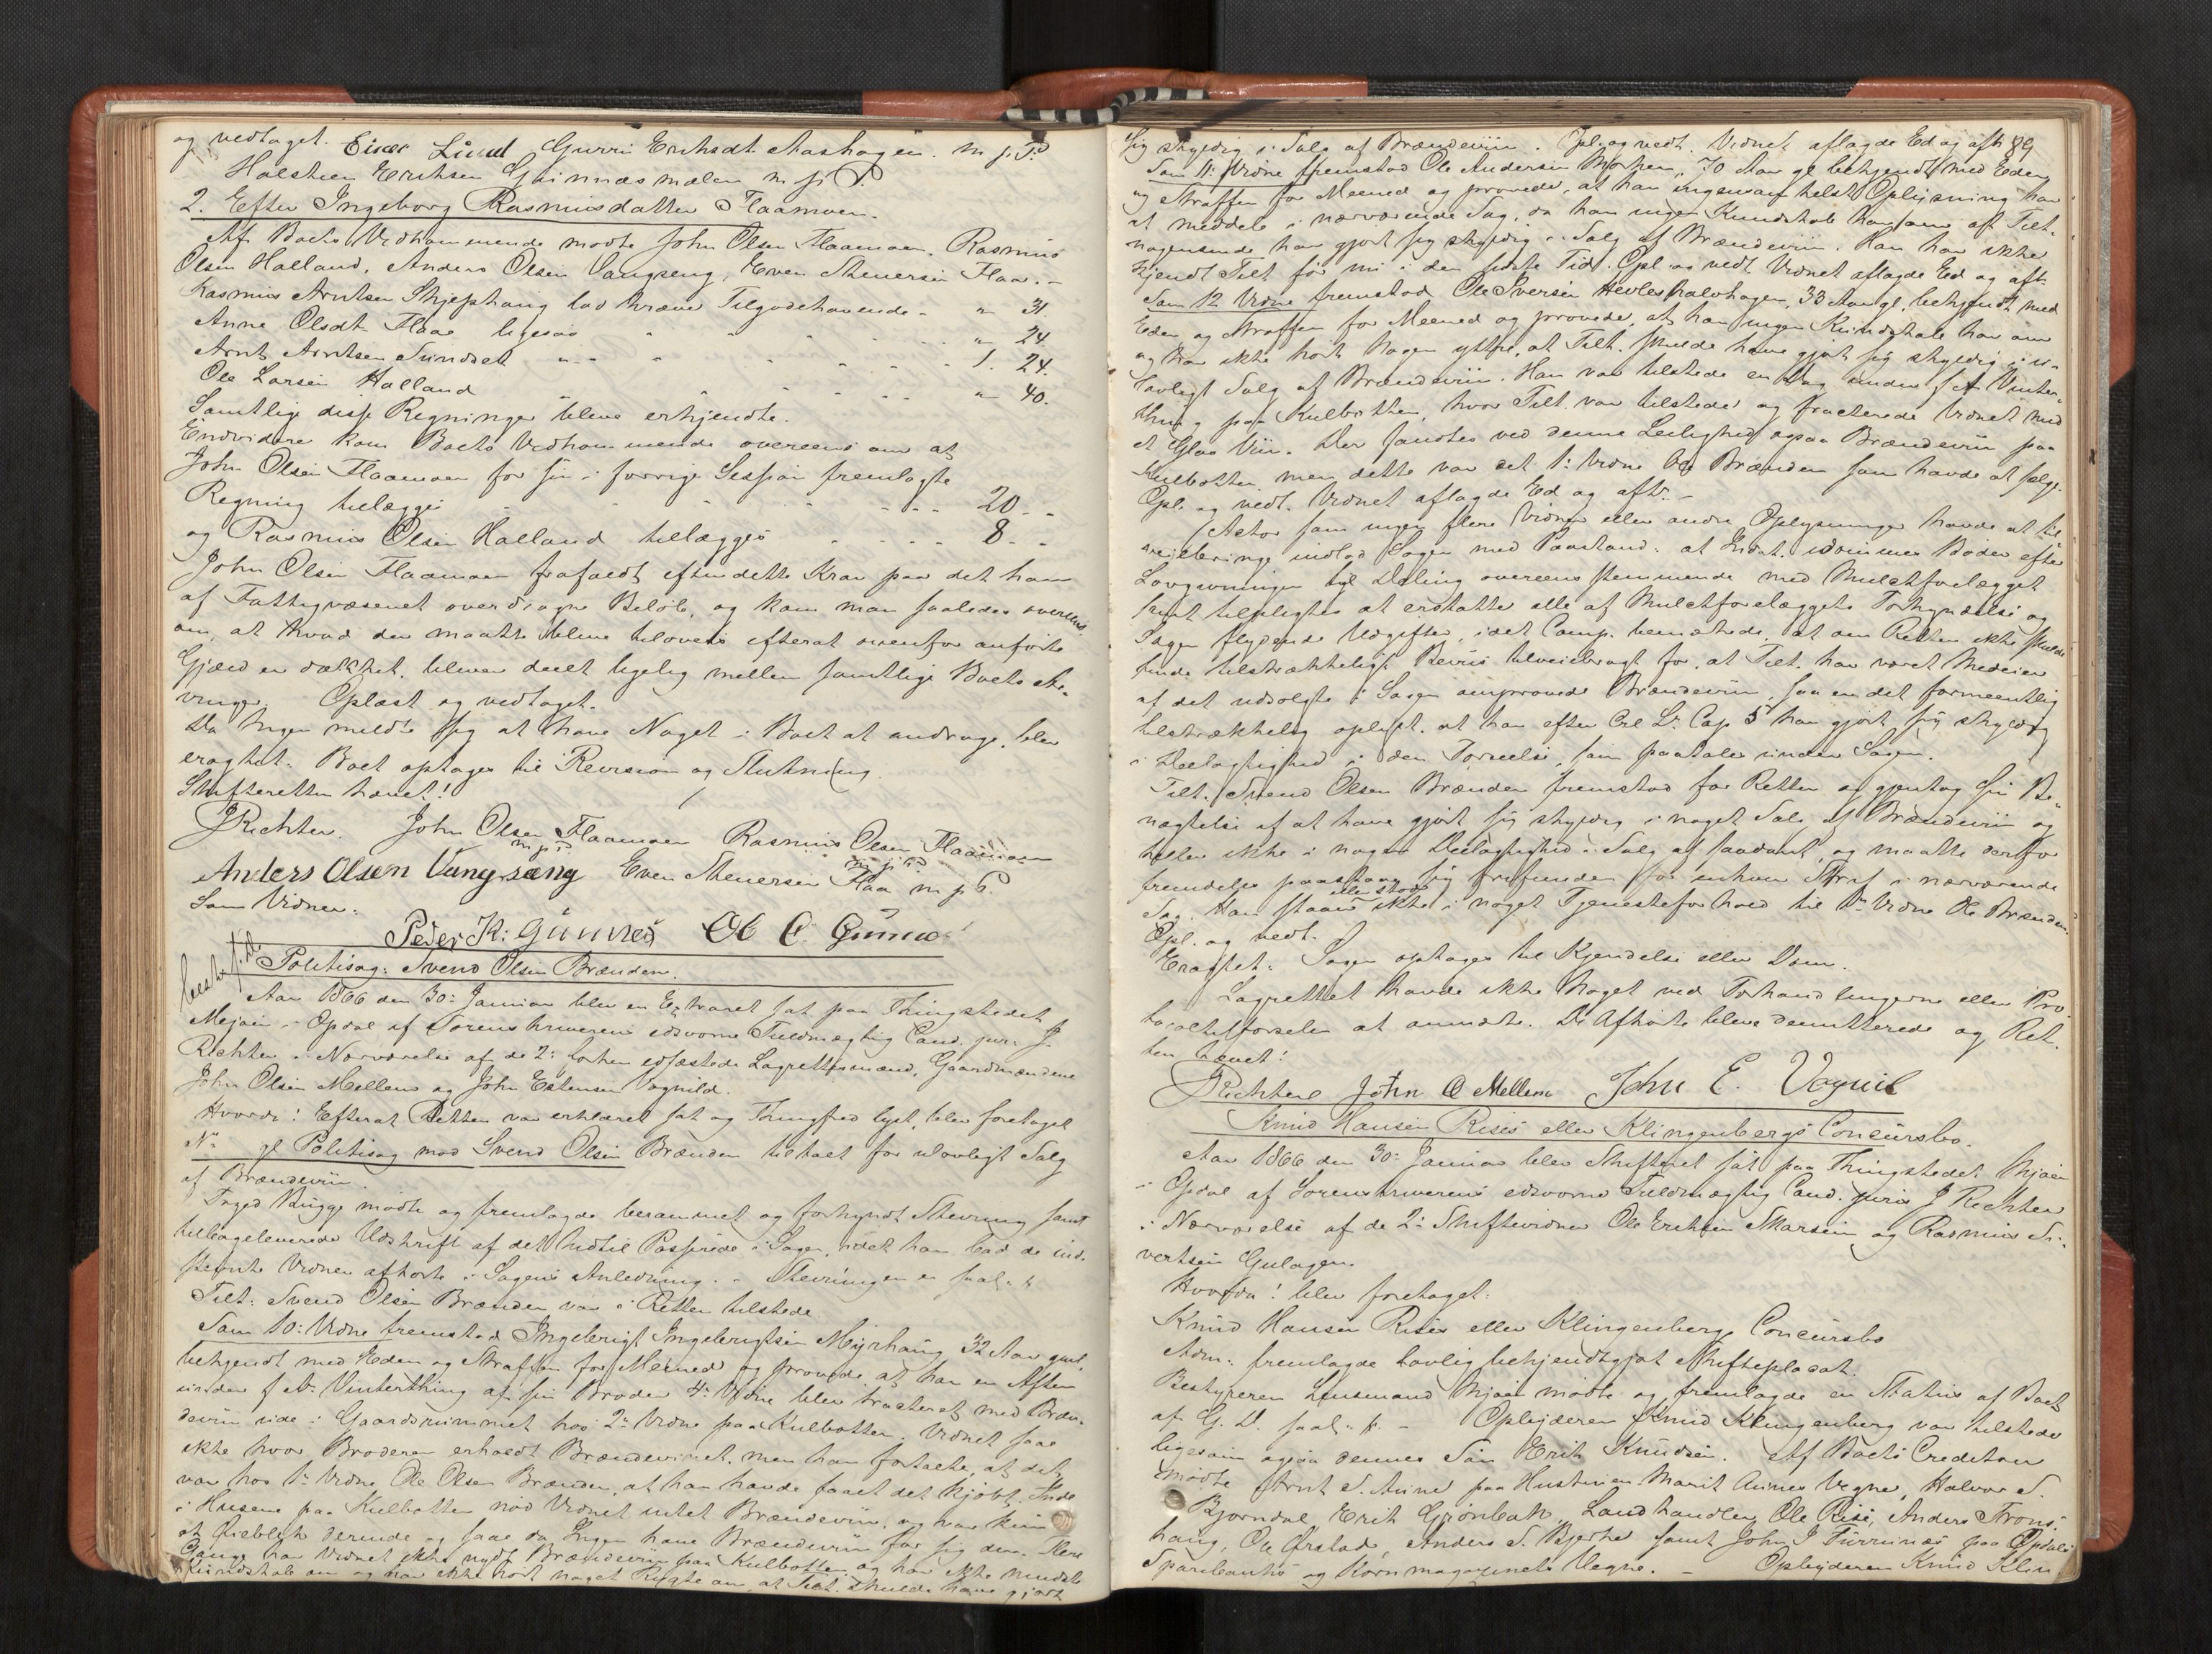 og vedtaget. Einar Lund Gurri Erichsdt Aashagen. m. p. P.
Halsteen Erichsen Grinnæsmælen m. p. P.
2. Efter Ingeborg Rasmusdatter Flaamoen.
Af Boets Vedkommende mødte John Olsen Flaamoen, Rasmus
Olsen Halland, Anders Olsen Vangseng, Even Steuersen Flaa. -
Rasmus Arntsen Skjephaug lod kræve Tilgodehavende - " 31
Anne Olsdt Flaa ligesaa " 24
Arnt Arntsen Sundset 1. 24.
Ole Larsen Halland " 40.
Samtlige disse Regninger bleve erkjendte.
Endvidere kom Boets Vedkommende overeens om at
John Olsen Flaamoen for sin i forrige Session fremlagte
Regning tillægges 20 - -
og Rasmus Olsen Halland tillægges 8 - -
John Olsen Flaamoen frafaldt efter dette Krav paa det ham
af Fattigvæsenet overdragne Beløb, og kom man saaledes overeens
om, at hvad der maatte blive tilovers efterat ovenfor anførte
Gjæld er dækket, bliver deelt ligelig mellem samtlige Boets Ar-
vinger. Oplæst og vedtaget.
Da Ingen meldte sig at have Noget i Boet at andrage, blev
eragtet: Boet optages til Revision og Slutning.
Skifteretten hævet!
J Richter. John Olsen Flaamoen Rasmus Olsen Flaamoen
m. p. P. m. p. P.
Anders Olsen Vangsæng Even Steuersen Flaa m. p. P.
Som Vidner:
Peder K: Günnes Ole O. Günnes
Politisag: Svend Olsen Brænden.
Aar 1866 den 30: Januar blev en Extraret sat paa Thingstedet
Mjøen i Opdal af Sorenskriverens edsvorne Fuldmægtig Cand. jur. J.
Richter i Nærværelse af de 2: laken edfæstede Lagrettesmænd, Gaardmændene
John Olsen Mellem og John Estensen Vognild.
Hvorda! Efterat Retten var erklæret sat og Thingfred lyst, blev foretaget
N: gl Politisag mod Svend Olsen Brænden tiltalt for ulovligt Salg
af Brændeviin.
Foged Bügge mødte og fremlagde berammet og forkyndt Stevning samt
tilbageleverede Udskrift af det hidtil Passerede i Sagen, idet han bad de ind-
stevnte Vidner afhørte i Sagens Anledning. - Stevningen er saal: k
Tilt: Svend Olsen Brænden var i Retten tilstede
Som 10: Vidne fremstod Ingebrigt Ingebrigtsen Myrhaug 32 Aar gml.
bekjendt med Eden og Straffen for Meened og provede, at han en Aften
under f. A: Vinterthing af sin Broder 4: Vidne blev tracteret med Bræn-
deviin ude i Gaardsrummet hos 2: Vidne paa Kulbotten. Vidnet saae
ikke hvor Broderen erholdt Brændevinet, men han fortalte, at det
var hos 1: Vidne Ole Olsen Brænden, at han havde faaet det kjøbt. Inde
i Husene paa Kulbotten nød Vidnet intet Brændeviin, og var kun
et Øieblik derinde og saae da Ingen have Brændeviin for sig der. Flere
Gange har Vidnet ikke nydt Brændeviin paa Kulbotten og har ikke mindste
Kundskab om og har ikke hørt noget Rygte om, at Tilt. skulde have gjort
89
sig skyldig i Salg af Brændeviin. Opl. og vedt. Vidnet aflagde Ed og aftr.
Som 11: Vidne fremstod Ole Andersen 70 Aar gl. bekjendt med Eden
og Straffen for Meened og provede, at han ingensomhelst Oplysning har
at meddele i nærværende Sag, da han ingen Kundskab har om at Tilt.
nogensinde har gjort sig skyldig i Salg af Brændeviin. Han har ikke
kjendt Tilt. før nu i den sidste Tid. Opl. og vedt. Vidnet aflagde Ed og aftr.
Som 12 Vidne fremstod Ole Iversen 33 Aar gl. bekjendt med
Eden og Straffen for Meened og provede, at han ingen Kundskab har om
og har ikke hørt Nogen yttre, at Tilt. skulde have gjort sig skyldig i u-
lovligt Salg af Brændeviin. Han var tilstede en Dag under f. A. Vinter-
thing paa Kulbotten, hvor Tilt. var tilstede og tracterede Vidnet med
et Glas Viin. Der fandtes ved denne Leilighed ogsaa Brændeviin paa
Kulbotten, men dette var det 1: Vidne Ole Brænden som havde at sælge.
Opl. og vedt. Vidnet aflagde Ed og aftr. -
Actor som ingen flere Vidner eller andre Oplysninger havde at til-
veiebringe indlod Sagen med Paastand: at Indst. idømmes Bøder efter
Lovgivningen til Deling overeensstemmende med Mulctforelægget
samt tilpligtes at erstatte alle af Mulctforelæggets Forkyndelse og
Sagen flydende Udgifter, idet Comp. bemærkede, at om Retten ikke skulde
finde tilstrækkeligt Beviis tilveiebragt for, at Tilt. har været Medeier
af det udsolgte i Sagen omprovede Brændeviin, saa er det formeentlig
tilstrækkelig oplyst, at han efter Crl. L. Cap 5 har gjort sig skyldig
i Deelagtighed i den Forseelse, som paatales under Sagen.
Tilt. Svend Olsen Brænden fremstod for Retten og gjentog sin Be-
nægtelse af at have gjort sig skyldig i noget Salg af Brændeviin og
heller ikke i nogen Deelagtighed i Salg af saadant, og maatte derfor
fremdeles paastaae sig frifunden for enhver Straf i nærværende
Sag. Han staaer eller stod ikke i noget Tjenesteforhold til 1: Vidne Ole Brænden.
Opl. og vedt.
Eragtet: Sagen optages til Kjendelse eller Dom.
Lagrettet havde ikke Noget ved Forhandlingerne eller Pro-
tocoltilførselen at anmærke. De Afhørte bleve demitterede og Ret-
ten hævet!
J Richter John O Mellem John E. Vognild
Knud Hansen Rises eller Klingenbergs Concursbo.
Aar 1866 den 30: Januar blev Skifteret sat paa Thingstedet Mjøen
i Opdal af Sorenskriverens edsvorne Fuldmægtig Cand. juris J Richter
i Nærværelse af de 2: Skiftevidner Ole Erichsen Skarsem og Rasmus Si-
vertsen Gulagen.
Hvorda! blev foretaget:
Knud Hansen Rises eller Klingenbergs Concursbo
Adm: fremlagde lovlig bekjendtgjort Skifteplacat.
Bestyreren Lensmand Mjøen mødte og fremlagde en Status af Boet
af G. D. saal: k. - Opbyderen Knud Klingenberg var tilstede
ligesom ogsaa dennes Søn Erik Knudsen. Af Boets Creditorer
mødte Arnt S. Aune paa Hustruen Marit Aunes Vegne, Halvor S.
Bjørndal, Erik Grønbak, Landhandler Ole Rise, Anders Trons-
haug, Ole Ørstad, Anders S. Bjerke samt John J Furrunæs paa Opdals
Sparebanks og Kornmagazinets Vegne. - Opbyderen Knud Klin